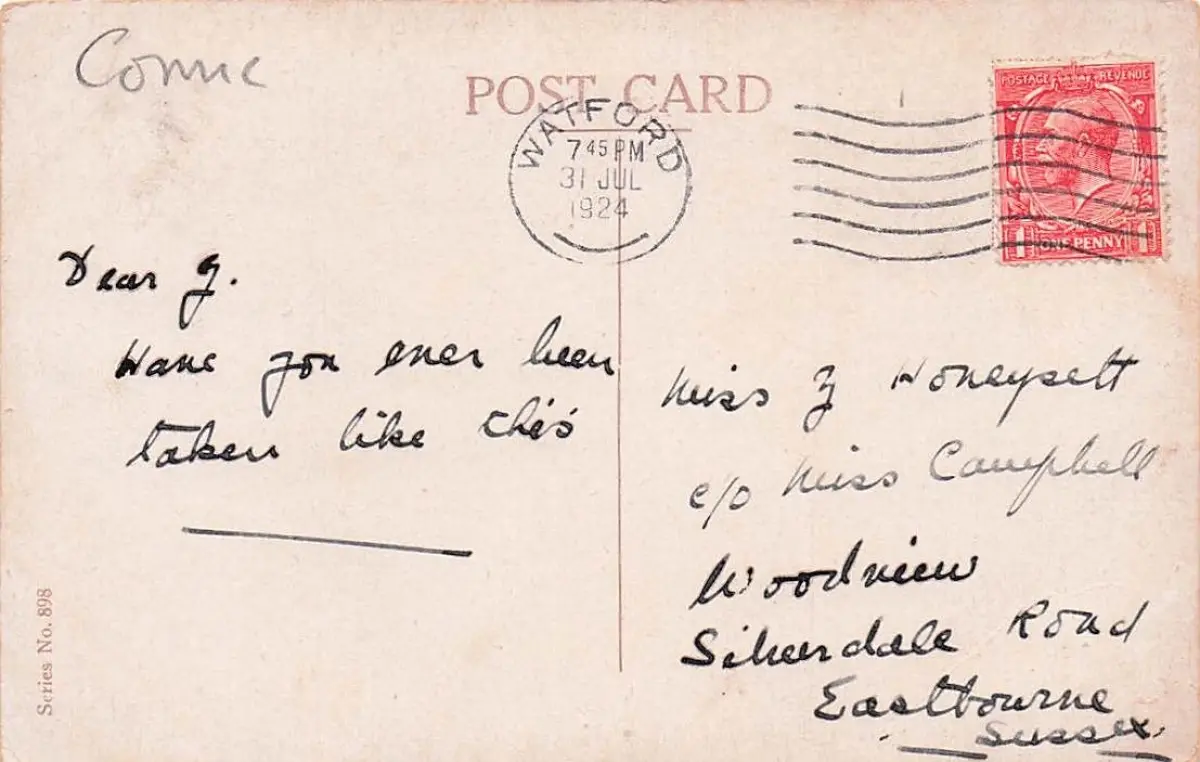 Comic
POST CARD
WATFORD
7 45 PM
31 JUL
1924
POSTAGE REVENUE
1 ONE PENNY 1
Dear J.
Have you ever been
taken like this
Miss J Honeysett
c/o Miss Campbell
Woodview
Silverdale Road
Eastbourne
Sussex.
Series No. 898